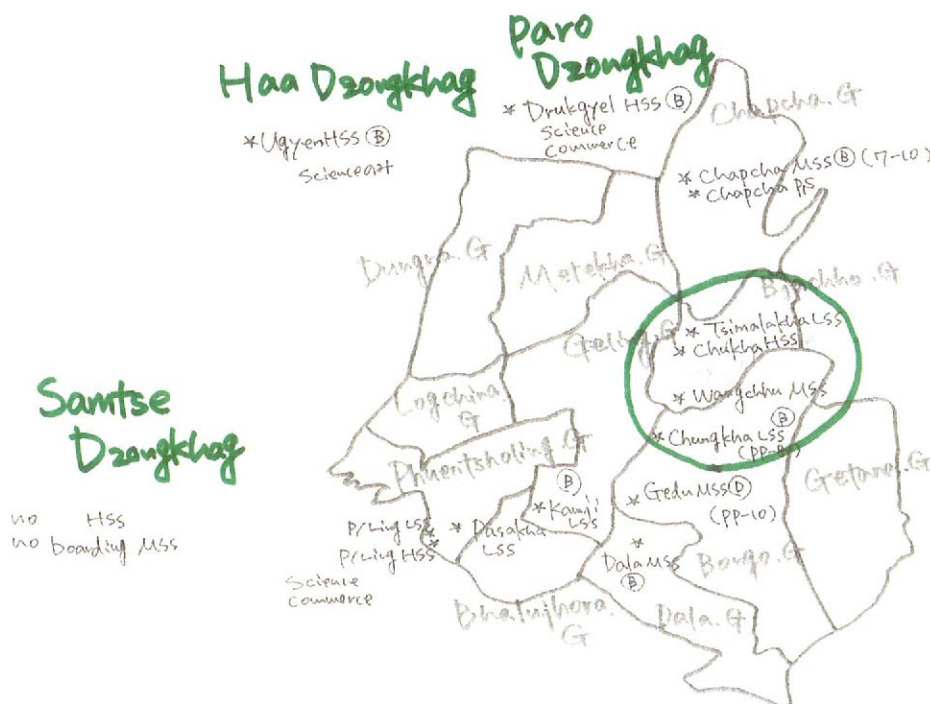 Paro
Dzongkhag
Haa Dzongkhag
* Drukgyel HSS Ⓑ
Science
Commerce
* Ugyen HSS Ⓑ
Science art
Chapcha.G
* Chapcha MSS Ⓑ (7-10)
* Chapcha PS
Dungna.G
Metekha.G
Bjachho.G
Geling.G
* Tsimalakha LSS
* Chukha HSS
* Wangchhu MSS
* Chungkha LSS Ⓑ
(PP-8)
Samtse
Dzongkhag
no HSS
no boarding MSS
Logchina.
G
Phuentsholing.G
Getana.G
Ⓑ
* Kamji
LSS
* Gedu MSS Ⓓ
(PP-10)
P/Ling LSS *
P/Ling HSS *
Science
Commerce
* Pasakha
LSS
*
Dala MSS
Ⓑ
Bongo.G
Bhalujhora.
G
Dala.G